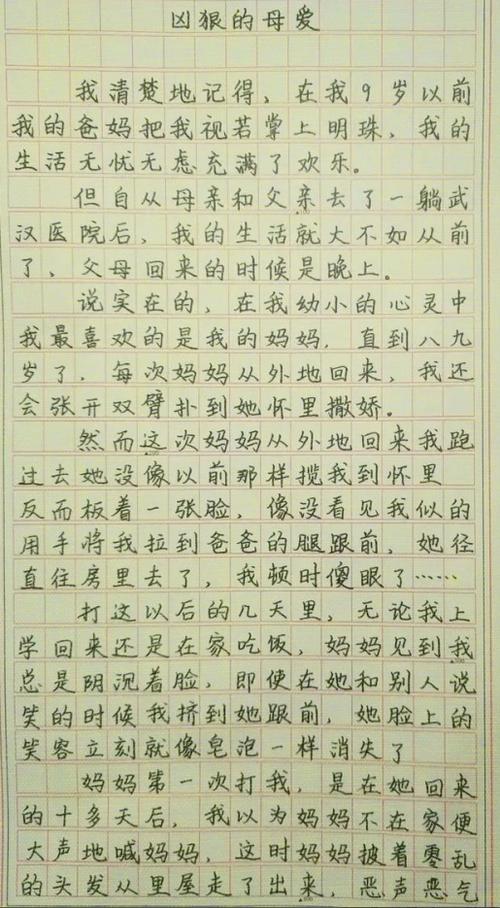 凶狠的母爱
我清楚地记得，在我9岁以前
我的爸妈把我视若掌上明珠，我的
生活无忧无虑充满了欢乐。
但自从母亲和父亲去了一躺武
汉医院后，我的生活就大不如从前
了、父母回来的时候是晚上。
说实在的，在我幼小的心灵中
我最喜欢的是我的妈妈，直到八九
岁了，每次妈妈从外地回来，我还
会张开双臂扑到她怀里撒娇。
然而这次妈妈从外地回来我跑
过去她没像以前那样揽我到怀里
反而板着一张脸，像没看见我似的
用手将我拉到爸爸的腿跟前，她径
直往房里去了，我顿时傻眼了……
打这以后的几天里，无论我上
学回来还是在家吃饭，妈妈见到我
总是阴沉着脸，即使在她和别人说
笑的时候我挤到她跟前，她脸上的
笑容立刻就像皂泡一样消失了
妈妈第一次打我，是在她回来
的十多天后，我以为妈妈不在家便
大声地喊妈妈，这时妈妈披着零乱
的头发从里屋走了出来，恶声恶气